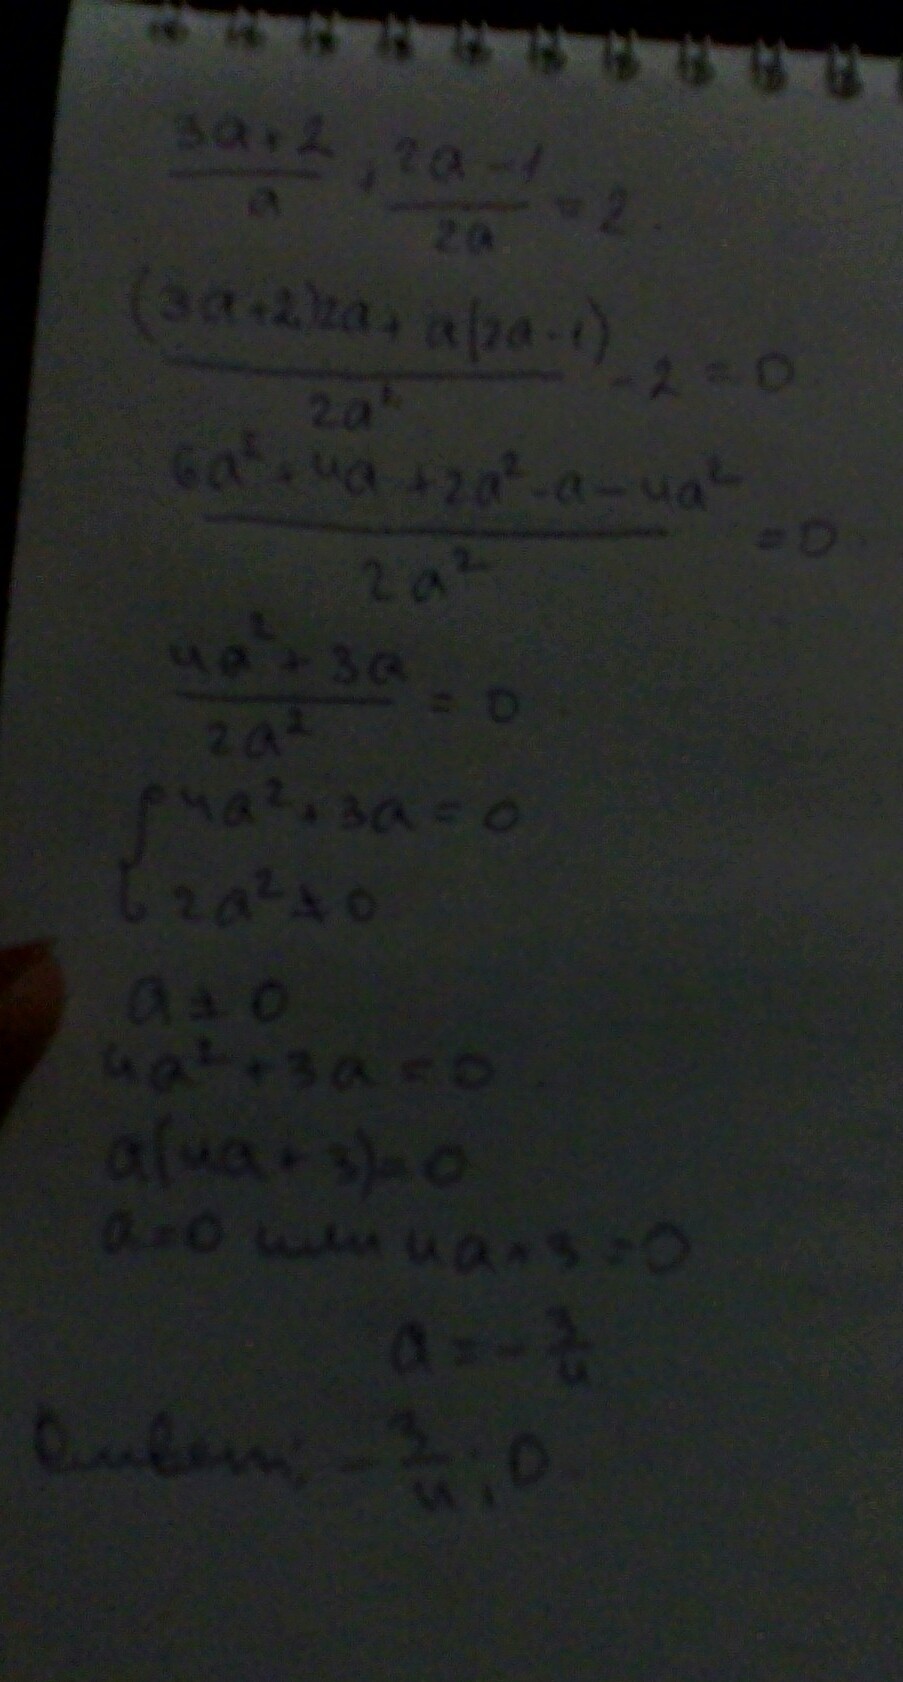 3a+2/a + 2a-1/2a = 2.
(3a+2)2a + a(2a-1)/2a² - 2 = 0
6a² + 4a + 2a² - a - 4a²/2a² = 0
4a² + 3a/2a² = 0
{4a² + 3a = 0
2a² ≠ 0
a ≠ 0
4a² + 3a = 0
a(4a + 3) = 0
a = 0 или 4a + 3 = 0
a = - 3/4
Ответ: - 3/4; 0